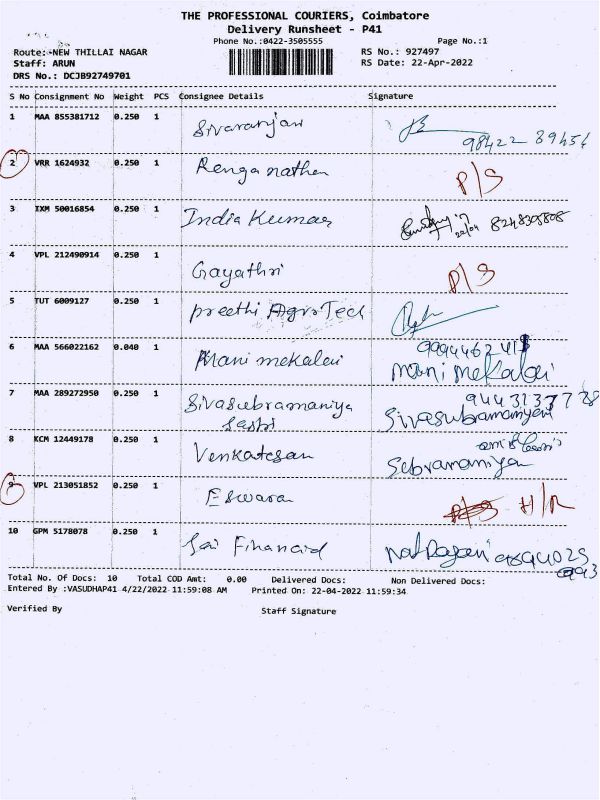 THE PROFESSIONAL COURIERS, Coimbatore
Delivery Runsheet - P41
Phone No.:0422-3505555
Page No.:1
Route:-NEW THILLAI NAGAR
RS No.: 927497
Staff: ARUN
RS Date: 22-Apr-2022
DRS No.: DCJB92749701
S No Consignment No Weight PCS Consignee Details Signature
1 MAA 855381712 0.250 1 Sivaranjani
98422 89456
2 VRR 1624932 0.250 1 Renganathan P/S
3 IXM 50016854 0.250 1 India Kumar 22/04 8248305808
4 VPL 212490914 0.250 1 Gayathri P/S
5 TUT 6009127 0.250 1 preethi AgroTech
6 MAA 566022162 0.040 1 Manimekalai
mani mekalai
7 MAA 289272950 0.250 1 Sivasubramaniya
Sivasubramaniyan
8 KCM 12449178 0.250 1 Venkatesan
Sebramaniyan
9 VPL 213051852 0.250 1 Eswara P/S H/R
10 GPM 5178078 0.250 1 Sai Financid
Total No. Of Docs: 10 Total COD Amt: 0.00 Delivered Docs: Non Delivered Docs:
Entered By :VASUDHAP41 4/22/2022 11:59:08 AM Printed On: 22-04-2022 11:59:34
Verified By Staff Signature